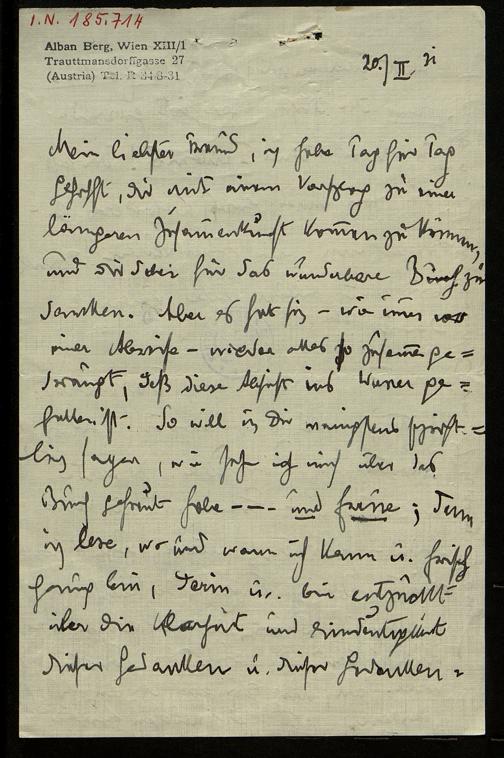 I.N. 185.714
Alban Berg, Wien XIII/1
Trauttmansdorffgasse 27
(Austria) Tel. R 34-8-31
20./II. 31
Mein liebster Freund, ich habe Tag für Tag
gehofft, dir mit einem Vorschlag zu einer
längeren Zusammenkunft kommen zu können,
und dir dabei für das wunderbare Buch zu
danken. Aber es hat sich – wie immer vor
einer Abreise – wieder alles so zusammenge=
drängt, daß diese Absicht ins Wasser ge=
fallen ist. So will ich Dir wenigstens schrift=
lich sagen, wie sehr ich mich über das
Buch gefreut habe --- und freue; denn
ich lese, wo und wann ich kann u. frisch
genug bin, darin u. bin entzückt
über die Klarheit und Eindeutigkeit
dieser Gedanken u. dieser Gedanken=